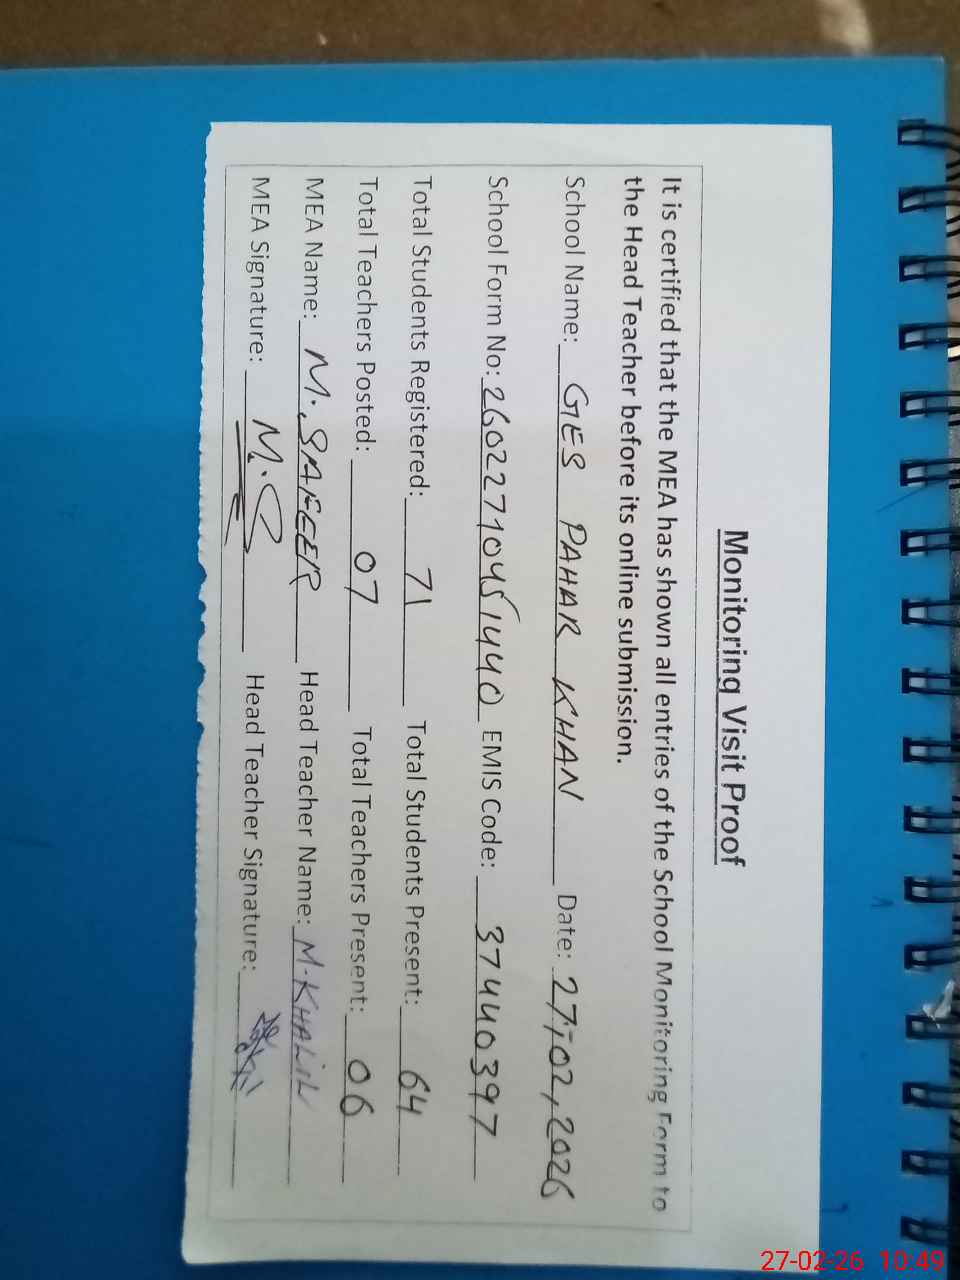 Monitoring Visit Proof
It is certified that the MEA has shown all entries of the School Monitoring Form to
the Head Teacher before its online submission.
School Name: GES PAHAR KHAN Date: 27,02,2026
School Form No: 26022710451440 EMIS Code: 37440397
Total Students Registered: 71 Total Students Present: 64
Total Teachers Posted: 07 Total Teachers Present: 06
MEA Name: M. SAFEER Head Teacher Name: M. KHALIL
MEA Signature: M.S Head Teacher Signature:
27-02-26 10:49